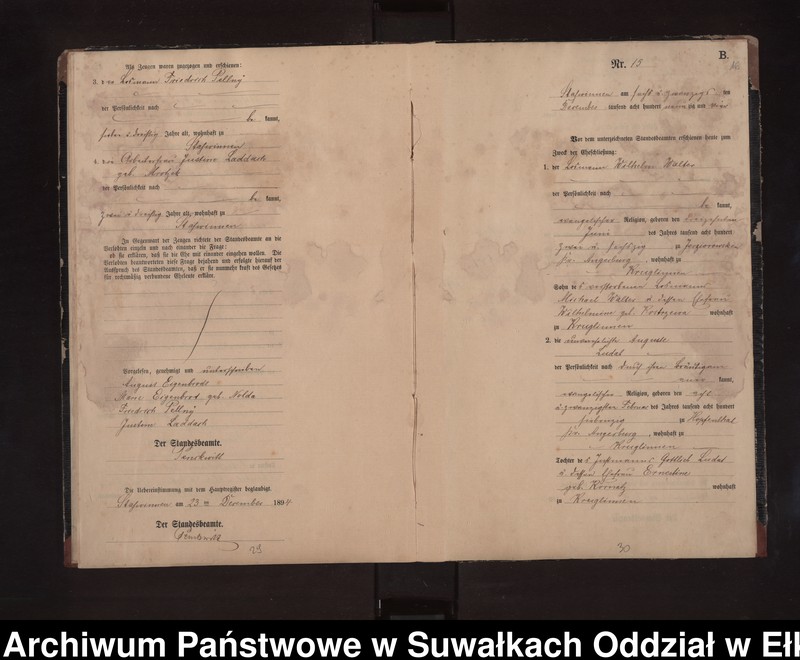 Als Zeugen waren zugezogen und erschienen:
3. der Losmann Friedrich
der Persönlichkeit nach
be kannt,
sieben u dreißig Jahre alt, wohnhaft zu
Staswinnen
4. die Arbeiterfrau Justine Laddach
geb.
der Persönlichkeit nach
be kannt,
zwei u dreißig Jahre alt, wohnhaft zu
Staswinnen
In Gegenwart der Zeugen richtete der Standesbeamte an die
Verlobten einzeln und nach einander die Frage:
ob sie erklären, daß sie die Ehe mit einander eingehen wollen. Die
Verlobten beantworteten diese Frage bejahend und erfolgte hierauf der
Ausspruch des Standesbeamten, daß er sie nunmehr kraft des Gesetzes
für rechtmäßig verbundene Eheleute erkläre.
Vorgelesen, genehmigt und unterschrieben
August Eigenbrodt
Eigenbrodt geb. Nolda
Friedrich
Justine Laddach
Der Standesbeamte.
Die Uebereinstimmung mit dem Hauptregister beglaubigt.
Staswinnen am 23 ten Dezember 1894
Der Standesbeamte.
29
B.
Nr. 15
Staswinnen am sechs u zwanzigs ten
Dezember tausend acht hundert neun zig und vier
Vor dem unterzeichneten Standesbeamten erschienen heute zum
Zweck der Eheschließung:
1. der Losmann Wilhelm Walter
der Persönlichkeit nach
be kannt,
evangelischer Religion, geboren den
Juni des Jahres tausend acht hundert
zwei u. sechszig zu
Kr. Angerburg, wohnhaft zu
Kruglinnen
Sohn des verstorbenen Losmann
Michael Walter u dessen Ehefrau
Wilhelmine geb. wohnhaft
zu Kruglinnen
2. die unverehelichte Auguste
Ludat
der Persönlichkeit nach durch ihren Bräutigam
kannt,
evangelischer Religion, geboren den acht
u zwanzigsten des Jahres tausend acht hundert
siebenzig zu Hopfenthal
Kr. Angerburg, wohnhaft zu
Kruglinnen
Tochter des Gottlieb Ludat
u dessen Ehefrau Ernestine
geb. wohnhaft
zu Kruglinnen
30
Archiwum Państwowe w Suwałkach Oddział w Ełk